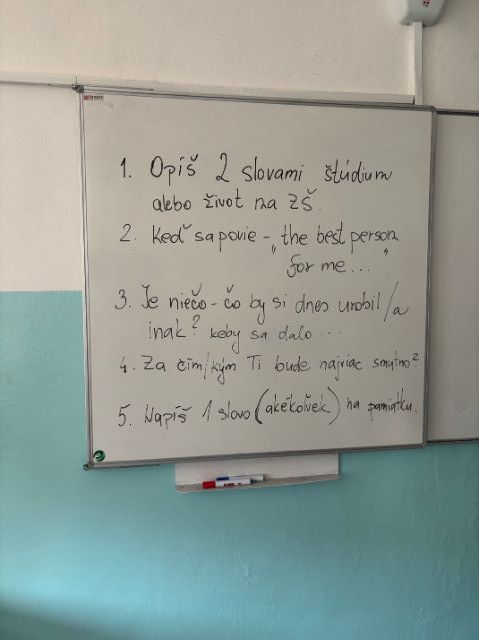 1. Opíš 2 slovami štúdium
alebo život na ZŠ.
2. Keď sa povie - „the best person
for me..."
3. Je niečo - čo by si dnes urobil/a
inak? keby sa dalo...
4. Za čím/kým Ti bude najviac smutno?
5. Napíš 1 slovo (akékoľvek) na pamiatku.